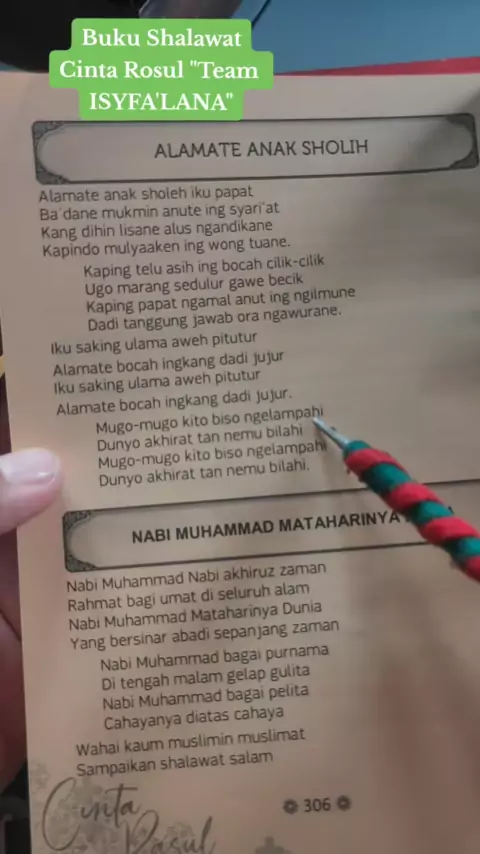 Buku Shalawat
Cinta Rosul "Team
ISYFA'LANA"
ALAMATE ANAK SHOLIH
Alamate anak sholeh iku papat
Ba'dane mukmin anute ing syari'at
Kang dihin lisane alus ngandikane
Kapindo mulyaaken ing wong tuane.
Kaping telu asih ing bocah cilik-cilik
Ugo marang sedulur gawe becik
Kaping papat ngamal anut ing ngilmune
Dadi tanggung jawab ora ngawurane.
Iku saking ulama aweh pitutur
Alamate bocah ingkang dadi jujur
Iku saking ulama aweh pitutur
Alamate bocah ingkang dadi jujur.
Mugo-mugo kito biso ngelampahi
Dunyo akhirat tan nemu bilahi
Mugo-mugo kito biso ngelampahi
Dunyo akhirat tan nemu bilahi.
NABI MUHAMMAD MATAHARINYA
Nabi Muhammad Nabi akhiruz zaman
Rahmat bagi umat di seluruh alam
Nabi Muhammad Mataharinya Dunia
Yang bersinar abadi sepanjang zaman
Nabi Muhammad bagai purnama
Di tengah malam gelap gulita
Nabi Muhammad bagai pelita
Cahayanya diatas cahaya
Wahai kaum muslimin muslimat
Sampaikan shalawat salam
Cinta
Rasul
306